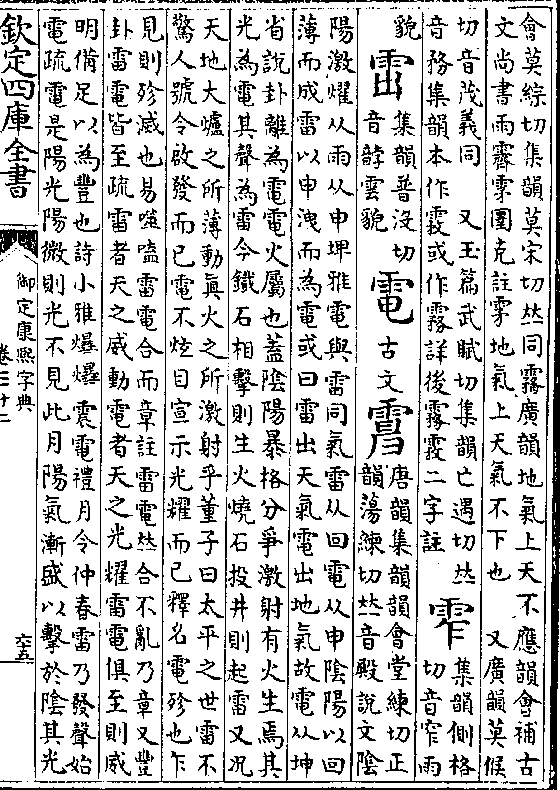 會莫綜切集韻莫宋切𠀤同霧廣韻地氣上天不應韻會補古
文尚書雨霽雺圛克註雺地氣上天氣不下也 又廣韻莫候
切音茂義同 又玉篇武賦切集韻亡遇切𠀤
音務集韻本作霚或作霧詳後霧霚二字註
集韻側格
切音窄雨
貌
集韻普沒切
音誖雲貌
電
古文
唐韻集韻韻會堂練切正
韻蕩練切𠀤音殿說文陰
陽激燿从雨从申埤雅電與雷同氣雷从回電从申陰陽以回
薄而成雷以申洩而為電或曰雷出天氣電出地氣故電从坤
省說卦離為電電火屬也蓋陰陽暴格分爭激射有火生焉其
光為電其聲為雷今鐵石相擊則生火燒石投井則起雷又況
天地大爐之所薄動眞火之所激射乎董子曰太平之世雷不
驚人號令啟發而已電不炫目宣示光耀而已釋名電殄也乍
見則殄滅也易噬嗑雷電合而章註雷電𠀤合不亂乃章又豐
卦雷電皆至疏雷者天之威動電者天之光耀雷電俱至則威
明備足以為豐也詩小雅爗爗震電禮月令仲春雷乃發聲始
電疏電是陽光陽微則光不見此月陽氣漸盛以擊於陰其光
欽定四庫全書
御定康熙字典
卷三十二
六五